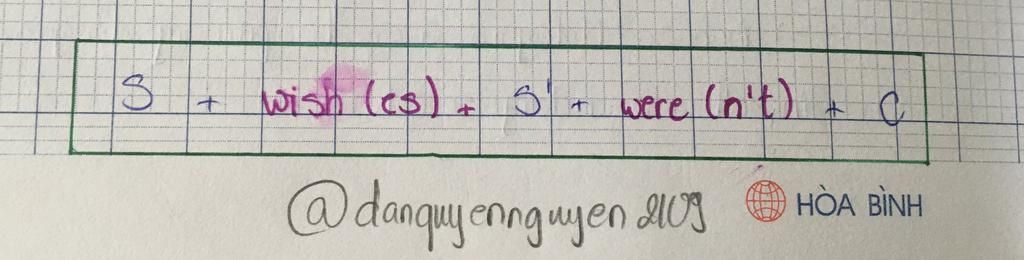 S + wish (es) + S' + were (n't) + C
@danquyennguyen2109
HÒA BÌNH